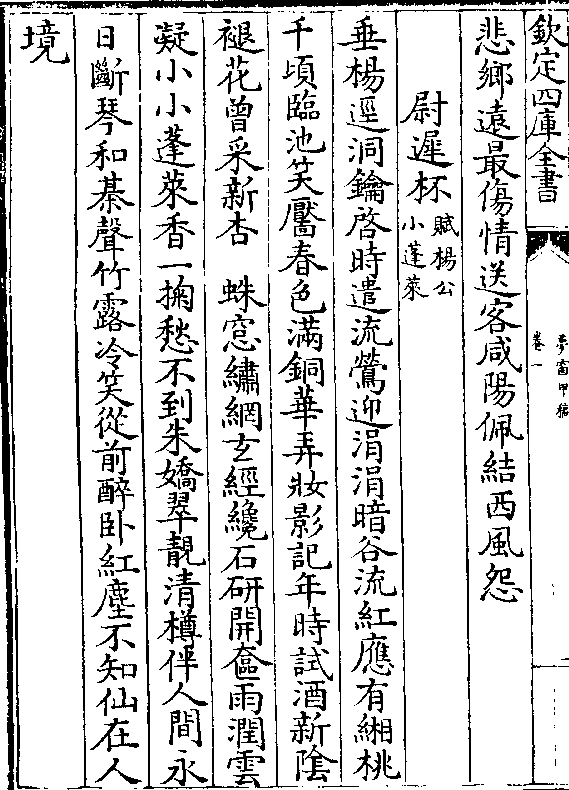 欽定四庫全書
夢窗甲稿
卷一
悲鄉遠最傷情送客咸陽佩結西風怨
尉遲杯賦楊公小蓬萊
垂楊逕洞鑰啓時遣流鶯迎涓涓暗谷流紅應有緗桃
千頃臨池笑靨春色滿銅華弄妝影記年時試酒新陰
褪花曾采新杏　蛛窓繡網玄經纔石硏開奩雨潤雲
凝小小蓬萊香一掬愁不到朱嬌翠靚清樽伴人間永
日斷琴和棊聲竹露冷笑從前醉卧紅塵不知仙在人
境